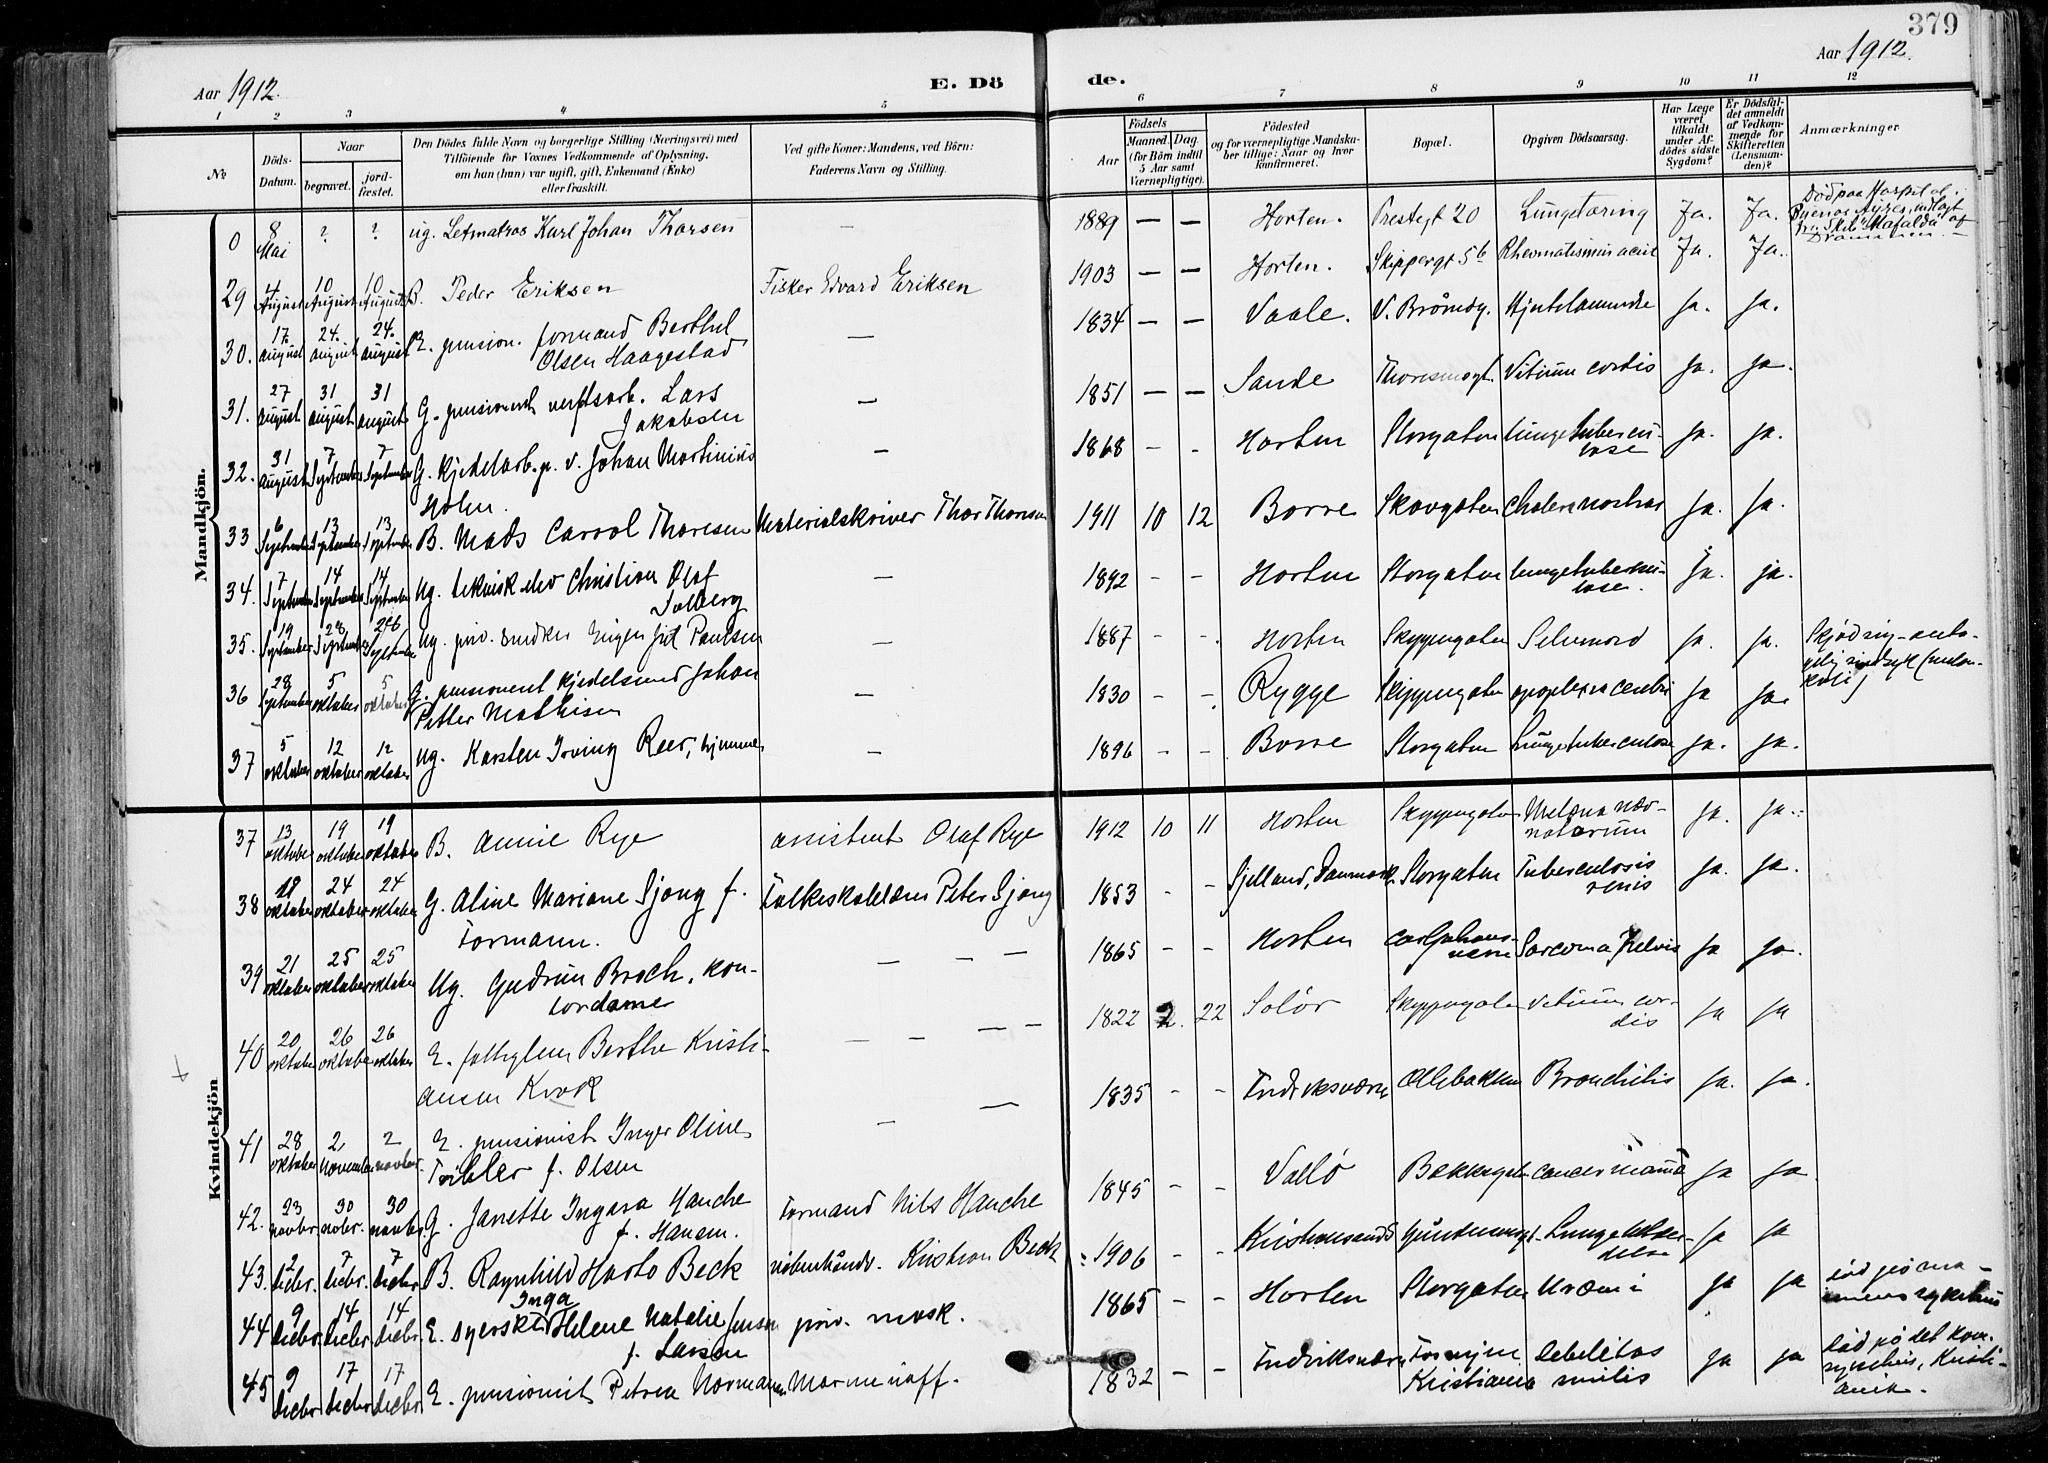 379
Aar 1912.
E. Dö
de.
Aar 1912.
1 2 3 4 5 6 7 8 9 10 11 12
№
Döds-Datum.
Naar
begravet.
jord-fæstet.
Den Dödes fulde Navn og borgerlige Stilling (Næringsvei) med
Tilföiende for Voxnes Vedkommende af Oplysning,
om han (hun) var ugift, gift, Enkemand (Enke)
eller fraskilt.
Ved gifte Koner: Mandens, ved Börn:
Faderens Navn og Stilling.
Födsels
Aar
Maaned. Dag.
(for Börn indtil
5 Aar samt
Værnepligtige).
Födested
og for værnepligtige Mandska-
ber tillige: Naar og hvor
konfirmeret.
Bopæl.
Opgiven Dödsaarsag.
Har Læge
været
tilkaldt
under Af-
dödes sidste
Sygdom?
Er Dödsfal-
det anmeldt
af Vedkom-
mende for
Skifteretten
(Lensman-
den)?
Anmærkninger
Mandkjön.
0 8 Mai ? ? ug. Letmatros Karl Johan Thorsen — 1889 — — Horten. Prestegt 20 Lungetæring Ja. Ja. Död paa Hospital i Buenos Ayres, indlagt fra Skib "Mafalda" af Drammen. —
29 4 August 10 August 10 August B. Peder Eriksen Fisker Edvard Eriksen 1903 — — Horten. Skippergt 56 Rheumatismus acut Ja. Ja.
30. 17. august 24. august 24. august E. pension. formand Berthel Olsen Haagestad — 1834 — — Vaale. V. Bromsg. Hjertelammelse Ja. Ja.
31. 27 august 31 august 31 august G. pensionert verftsarb. Lars Jakobsen — 1851 — — Sande Thoresensgt. Vitium cordis Ja. Ja.
32. 31 august 7 September 7 September G. Kjedelarb. p. v. Johan Martinius Holm. — 1868 - - Horten Storgaten Lungetubercu-lose Ja. Ja.
33 6 September 13 September 13 September B. Mads Carrol Thoresen Materialskriver Thor Thoresen 1911 10 12 Borre Skovgaten Cholera nostras Ja. Ja.
34. 7 September 14 September 14 September Ug. teknisk elev Christian Olaf Solberg — 1892 - - Horten Storgaten Lungetubercu-lose. Ja. ja.
35. 19 September 28 September September Ug. priv. snedker Paulsen — 1887 - - Horten Skippergaten Selvmord Ja. Ja.
36 28 September 5 oktober 5 oktober G. pensionert kjedelsmed Johan Petter Mathisen — 1830 - - Rygge Skippergaten apoplexia cerebri Ja Ja.
37 5 oktober 12 oktober 12 oktober Ug. Karsten Irving Reer, hjemme — 1896 - - Borre Storgaten Lungetuberculose Ja. Ja.
Kvindekjön
37 13 oktober 19 oktober 19 oktober B. Annie Rye assistent Olaf Rye 1912 10 11 Horten Skippergaten Melæna neo-natorum Ja. Ja.
38 18 oktober 24 oktober 24 oktober G. Aline Mariane Sjong f. Formann. Folkeskolelærer Peter Sjong 1853 - - Sjelland, Danmark Storgaten Tuberculosis renis Ja. Ja.
39 21 oktober 25 oktober 25 oktober Ug. Gudrun Broch, kon-tordame — — — 1865 - - Horten Carljohans-værn Sarcoma pelvis Ja Ja.
40 20. oktober 26 oktober 26 oktober E. Berthe Kristi-ansen Krok — — 1822 2. 22 Solör Skippergaten Vitium cor-dis Ja Ja
41 28 oktober 2 November 2 novbr. E. pensionist Inger Oline f. Olsen — 1835 - - Fredriksværn Ollebakken Bronchitis Ja. Ja.
42. 23 novbr. 30 novbr. 30 novbr. G. Janette Ingara Hanche f. Hansen. Formand Nils Hanche 1845 - - Vallö Bakkegaten cancer mammæ Ja Ja
43. 2 decbr. 7 decbr. 7 decbr B. Ragnhild Marto Beck Kristian Beck 1906 - - Kristiansand Ja Ja
44 9 decbr. 14 decbr. 14 decbr. E. dyerske Inga Helene Natalie Jensen f. Larsen priv. mask. 1865 - - Horten Storgaten Uræmi Ja Ja
45 9 decbr 17 decbr 17 decbr E. pensionist Petrea Normann Marineuoff. 1832 - - Fredriksværn Kristiania Debilitas senilis Ja Ja död på det kom. sykehus, Kristi-ania.